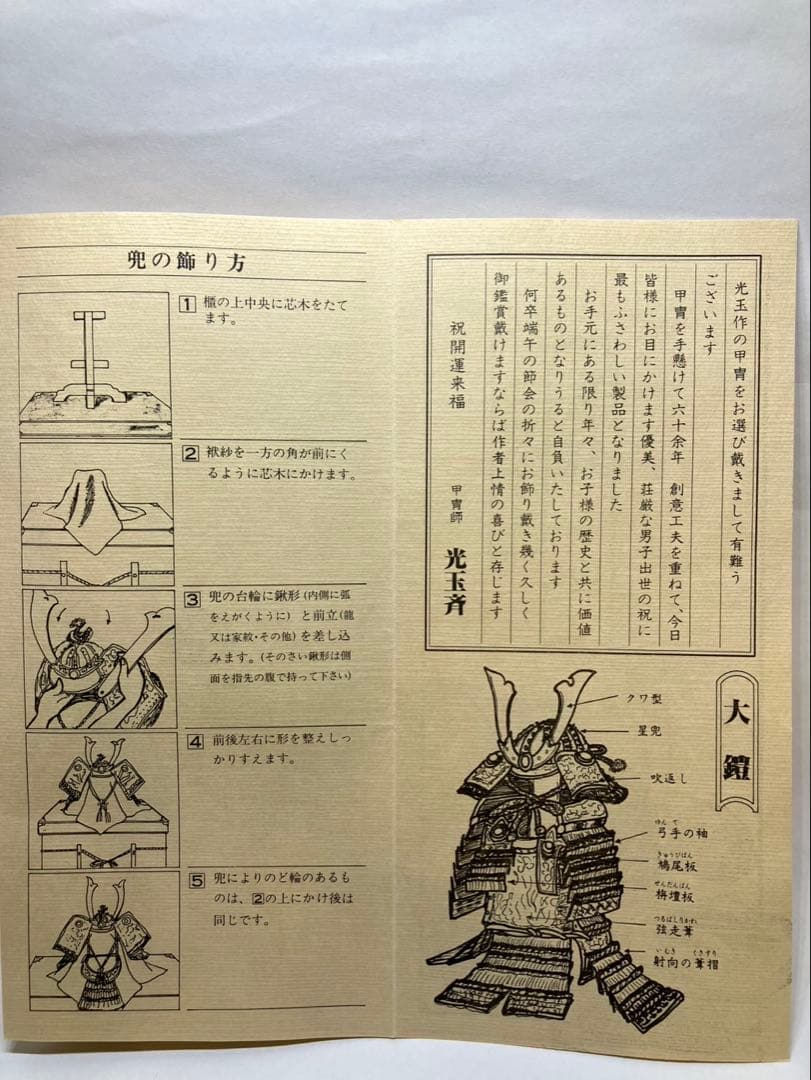 兜の飾り方
1 櫃の上中央に芯木をたて
ます。
2 袱紗を一方の角が前にく
るように芯木にかけます。
3 兜の台輪に鍬形(内側に弧
をえがくように)と前立(龍
又は家紋・その他)を差し込
みます。(そのさい鍬形は側
面を指先の腹で持って下さい)
4 前後左右に形を整えしっ
かりすえます。
5 兜によりのど輪のあるも
のは、2の上にかけ後は
同じです。
光玉作の甲冑をお選び戴きまして有難う
ございます
甲冑を手懸けて六十余年 創意工夫を重ねて、今日
皆様にお目にかけます優美、荘厳な男子出世の祝に
最もふさわしい製品となりました
お手元にある限り年々、お子様の歴史と共に価値
あるものとなりうると自負いたしております
何卒端午の節会の折々にお飾り戴き幾く久しく
御鑑賞戴けますならば作者上情の喜びと存じます
祝開運来福
甲冑師 光玉斉
大鎧
クワ型
星兜
吹返し
ゆんで
弓手の袖
きゅうびばん
鳩尾板
せんだんばん
栴壇板
つるばしりかわ
弦走葦
いむき くさずり
射向の葦摺